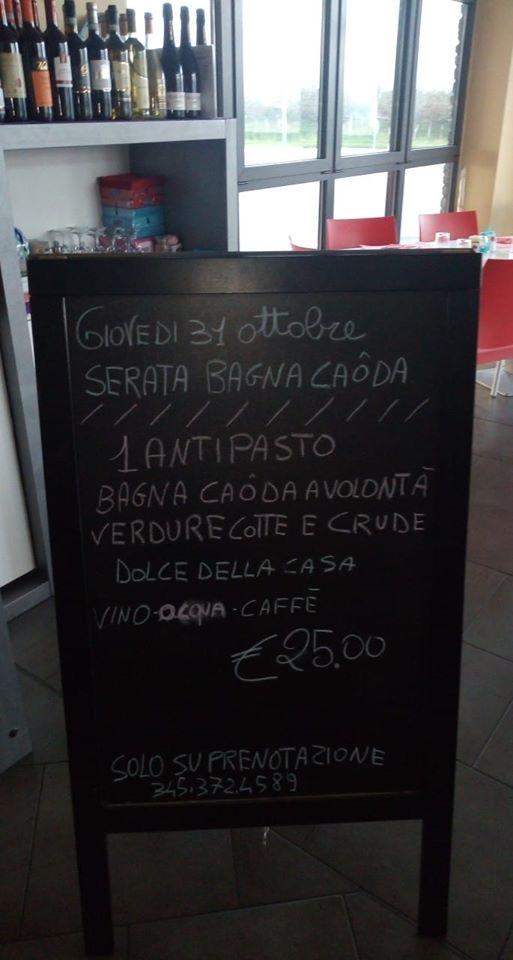 GIOVEDI 31 ottobre
SERATA BAGNA CAÔDA
/ / / / / / / / / / /
1 ANTIPASTO
BAGNA CAÔDA A VOLONTÀ
VERDURE COTTE E CRUDE
DOLCE DELLA CASA
VINO-ACQUA-CAFFÈ
€25.00
SOLO SU PRENOTAZIONE
345.372.4589